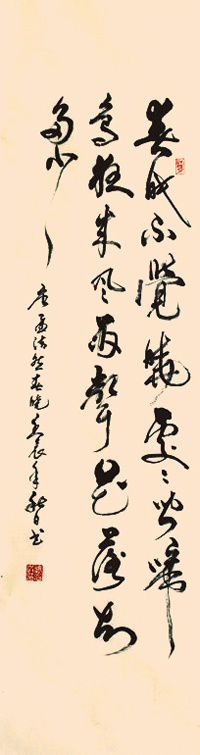 春眠不覺曉處〻聞啼
鳥夜來風雨聲花落知
多少
唐孟浩然春曉辰年秋日书